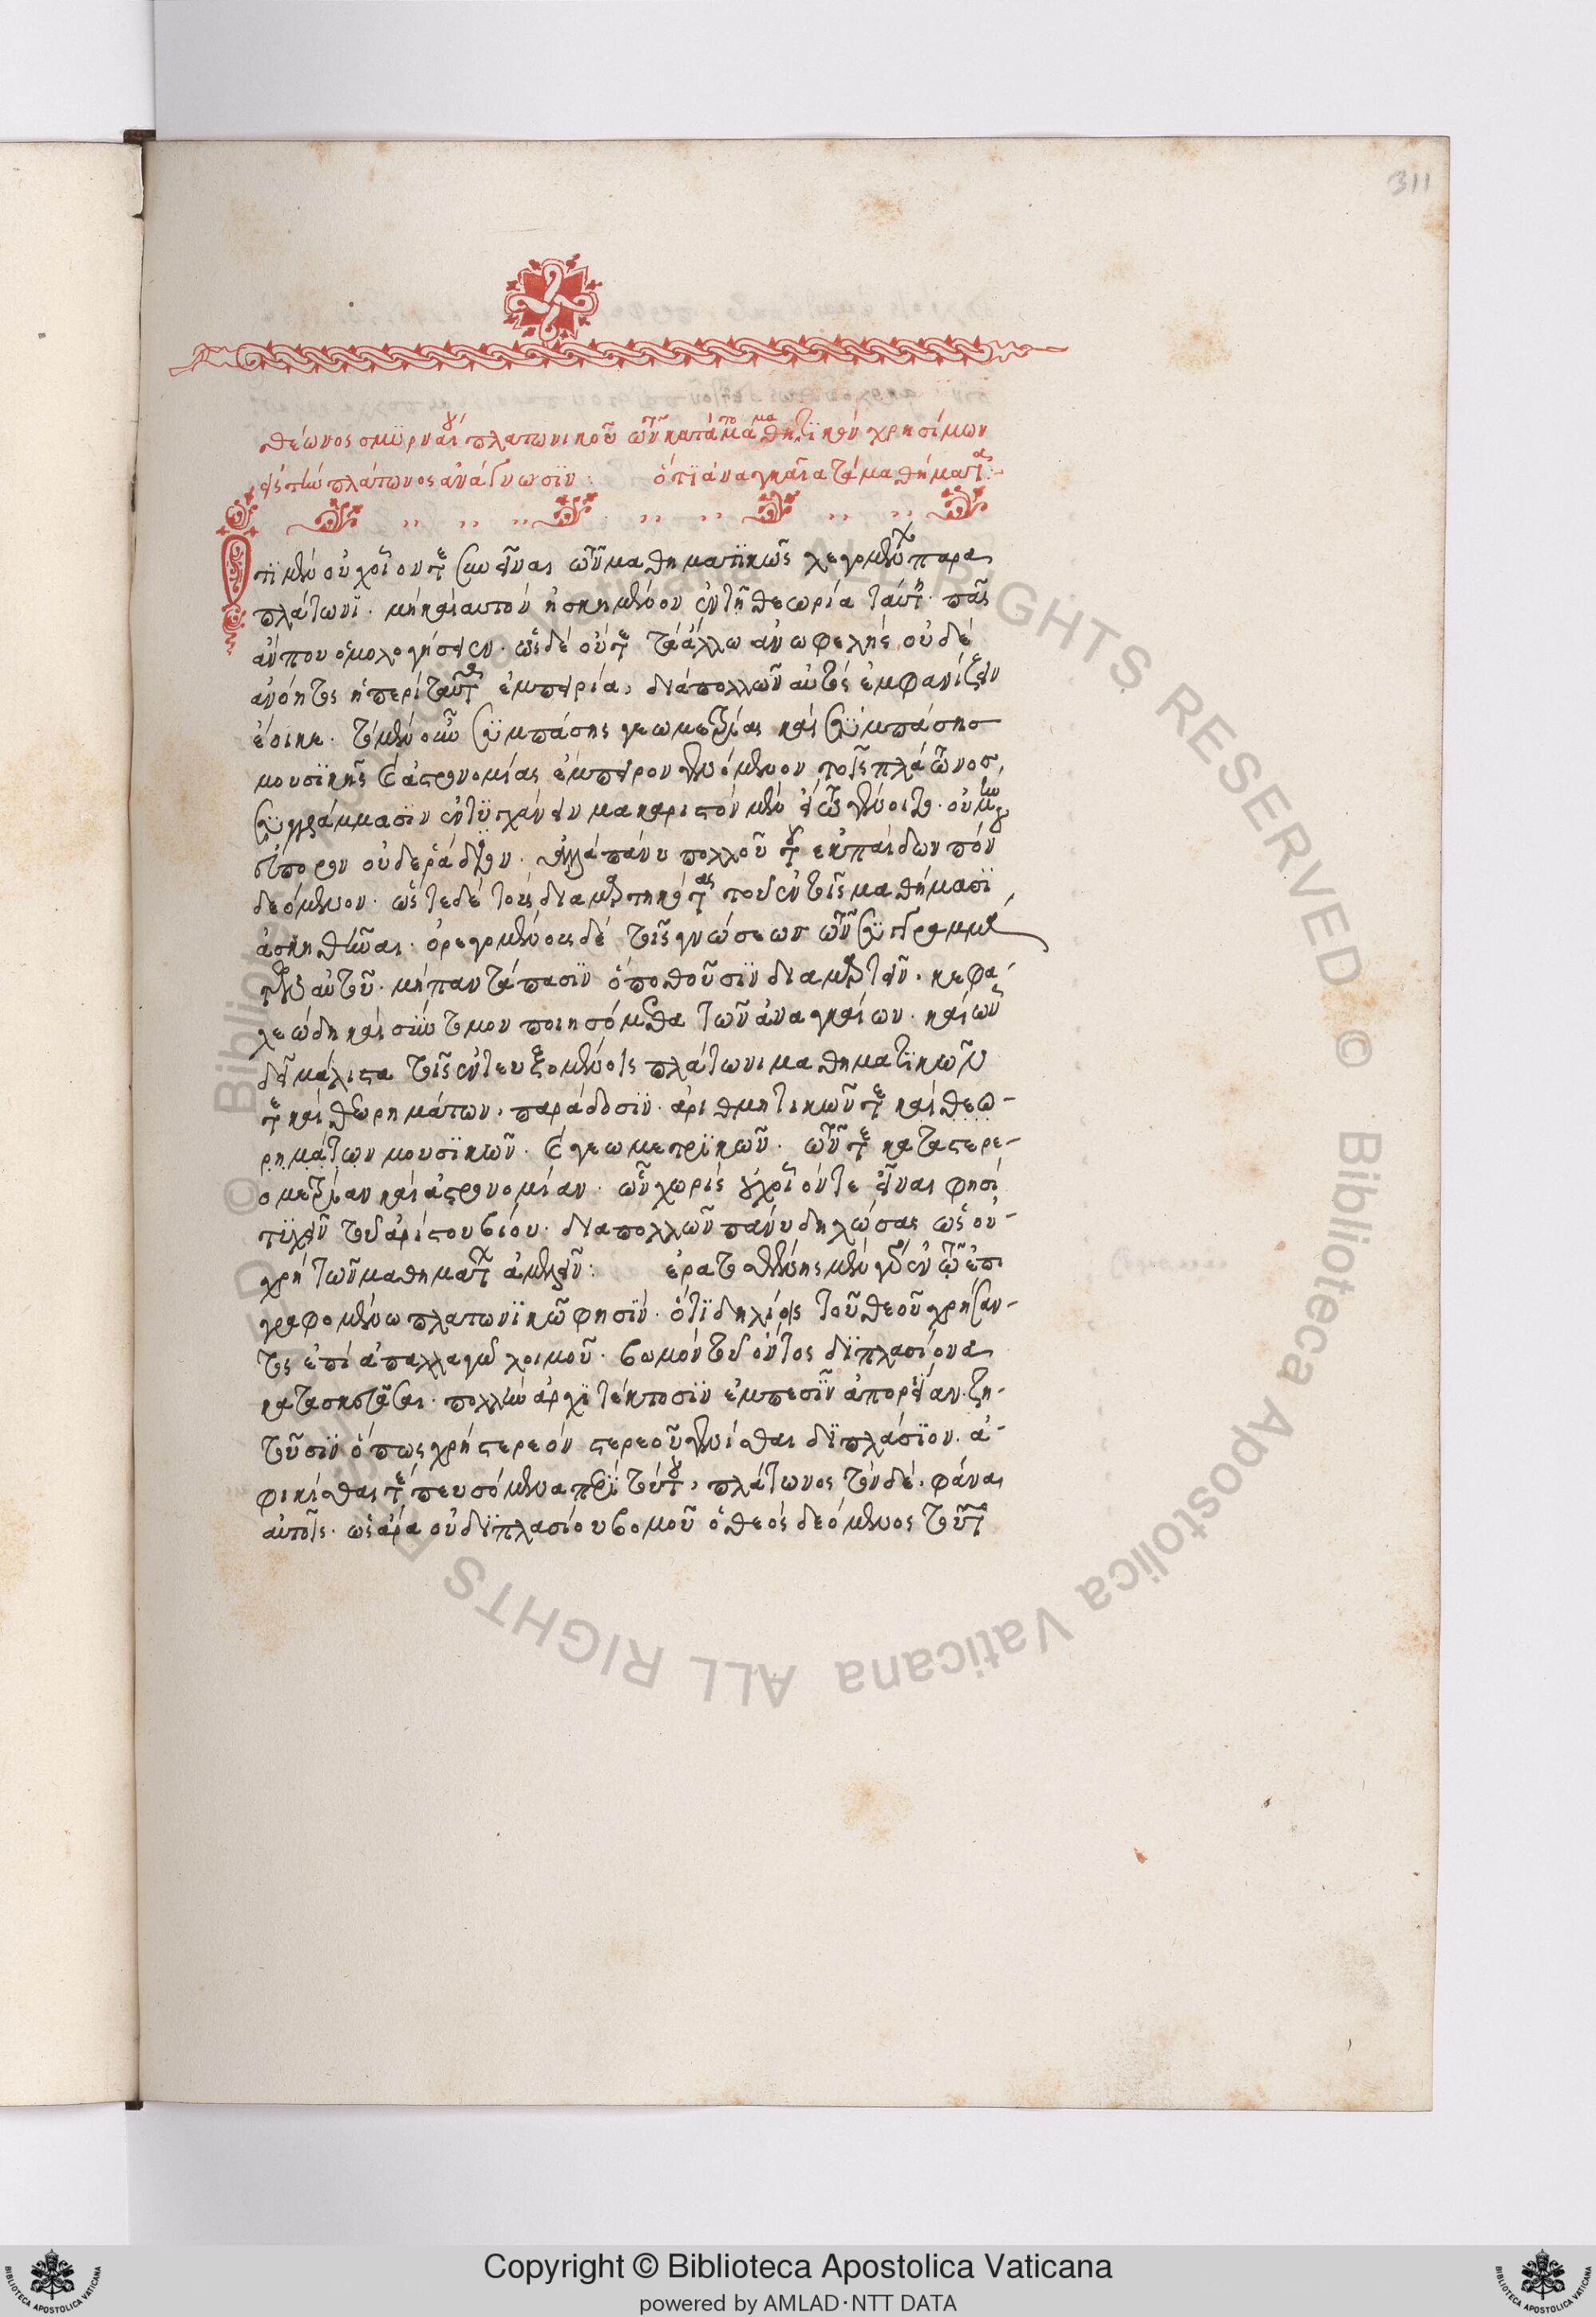 311
θέωνος σμυρναίου πλατωνικοῦ τῶν κατὰ τὸ μαθηματικὸν χρησίμων
εἰς τὴν πλάτωνος ἀνάγνωσιν : ὅτι ἀναγκαῖα τὰ μαθήματα :
ὅτι μὲν οὐχ οἷόν τε συνεῖναι τῶν μαθηματικῶς λεγομένων παρὰ
πλάτωνι. μὴ καὶ αὐτὸν ἠσκημένον ἐν τῆ θεωρία ταύτη. πᾶς
ἄν που ὁμολογήσειεν. ὡς δὲ οὔτε τὰ ἄλλω ἀνωφελὴς οὐδὲ
ἀνόητος ἡ περὶ ταῦτα ἐμπειρία, διὰ πολλῶν αὐτὸς ἐμφανίζειν
ἔοικε. τὸ μὲν οὖν συμπάσης γεωμετρίας καὶ συμπάσης
μουσικῆς καὶ ἀστρονομίας ἔμπειρον γενόμενον τοῖς πλάτωνος
συγγράμμασιν ἐντυγχάνειν μακαριστὸν μὲν εἴ τω γένοιτο. οὐ μὴν
εὔπορον οὐδὲ ῥάδιον. ἀλλὰ πάνυ πολλοῦ τοῦ ἐκ παίδων πόν
δεόμενον. ὥστε δὲ τοὺς διημαρτηκότας τοῦ ἐν τοῖς μαθήμασι
ἀσκηθῆναι. ὀρεγομένους δὲ τῆς γνώσεως τῶν συγγραμμά
των αὐτοῦ. μὴ παντάπασιν ὁ ποθοῦσιν διαμαρτεῖν. κεφα-
λαιώδη καὶ σύντομον ποιησόμεθα τῶν ἀναγκαίων. καὶ ὧν
δεῖ μάλιστα τοῖς ἐντευξομένοις πλάτωνι μαθηματικῶν
τε καὶ θεωρημάτων, παράδοσιν. ἀριθμητικῶν τε καὶ θεω-
ρημάτων μουσικῶν. καὶ γεωμετρικῶν. τῶν τε κατὰ στερε-
ομετρίαν καὶ ἀστρονομίαν. ὧν χωρὶς οὐχ οἷόν τε εἶναι φησὶ
τυχεῖν τοῦ ἀρίστου βίου. διὰ πολλῶν πάνυ δηλώσας ὡς οὐ-
χρὴ τῶν μαθημάτων ἀμελεῖν : ἐρατοσθένης μὲν γὰρ ἐν τῶ ἐπι
γραφομένω πλατωνικῶ φησὶν. ὅτι δηλίοις τοῦ θεοῦ χρήσαν-
τος ἐπὶ ἀπαλλαγῆ λοιμοῦ. βωμὸν τοῦ ὄντος διπλασίονα
κατασκευάσαι. πολλὴν ἀρχιτέκτοσιν ἐμπεσεῖν ἀπορίαν. ζη-
τοῦσιν ὅπως χρὴ στερεὸν στερεοῦ γενέσθαι διπλάσιον. ἀ-
φικέσθαι τε πευσομένους περὶ τούτου, πλάτωνος τὸν δὲ. φάναι
αὐτοῖς. ὡς ἄρα οὐ διπλασίου βομοῦ ὁ θεὸς δεόμενος τοῦτο
Copyright © Biblioteca Apostolica Vaticana
powered by AMLAD·NTT DATA